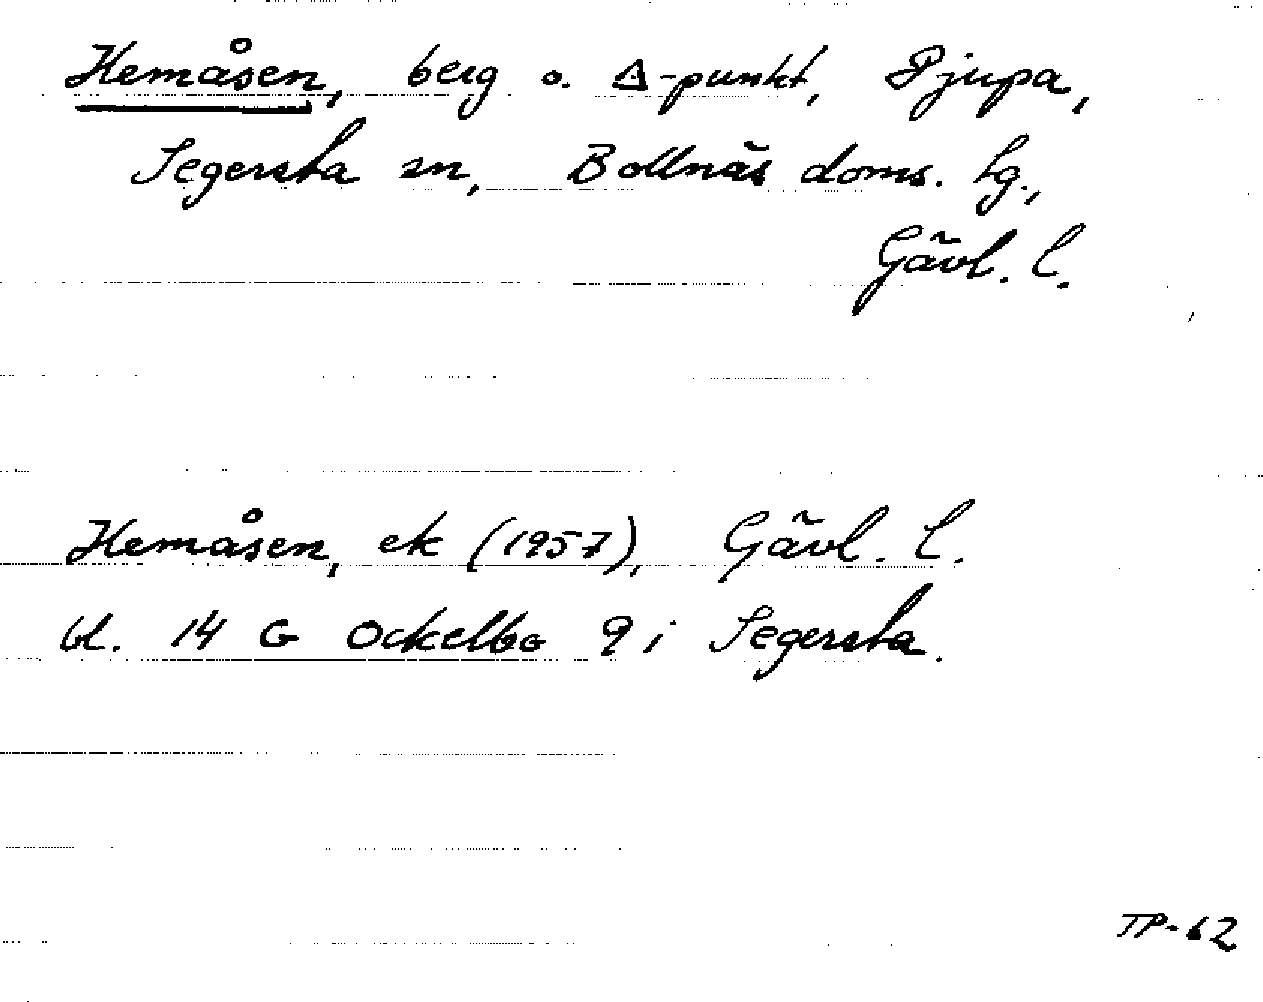 Hemåsen, berg o. Δ-punkt, Pjupa,
Segersta sn, Bollnäs doms. hg.,
Gävl. l.
Hemåsen, ek (1957), Gävl. l.
bl. 14 G Ockelbo 9 i Segersta.
TP-62